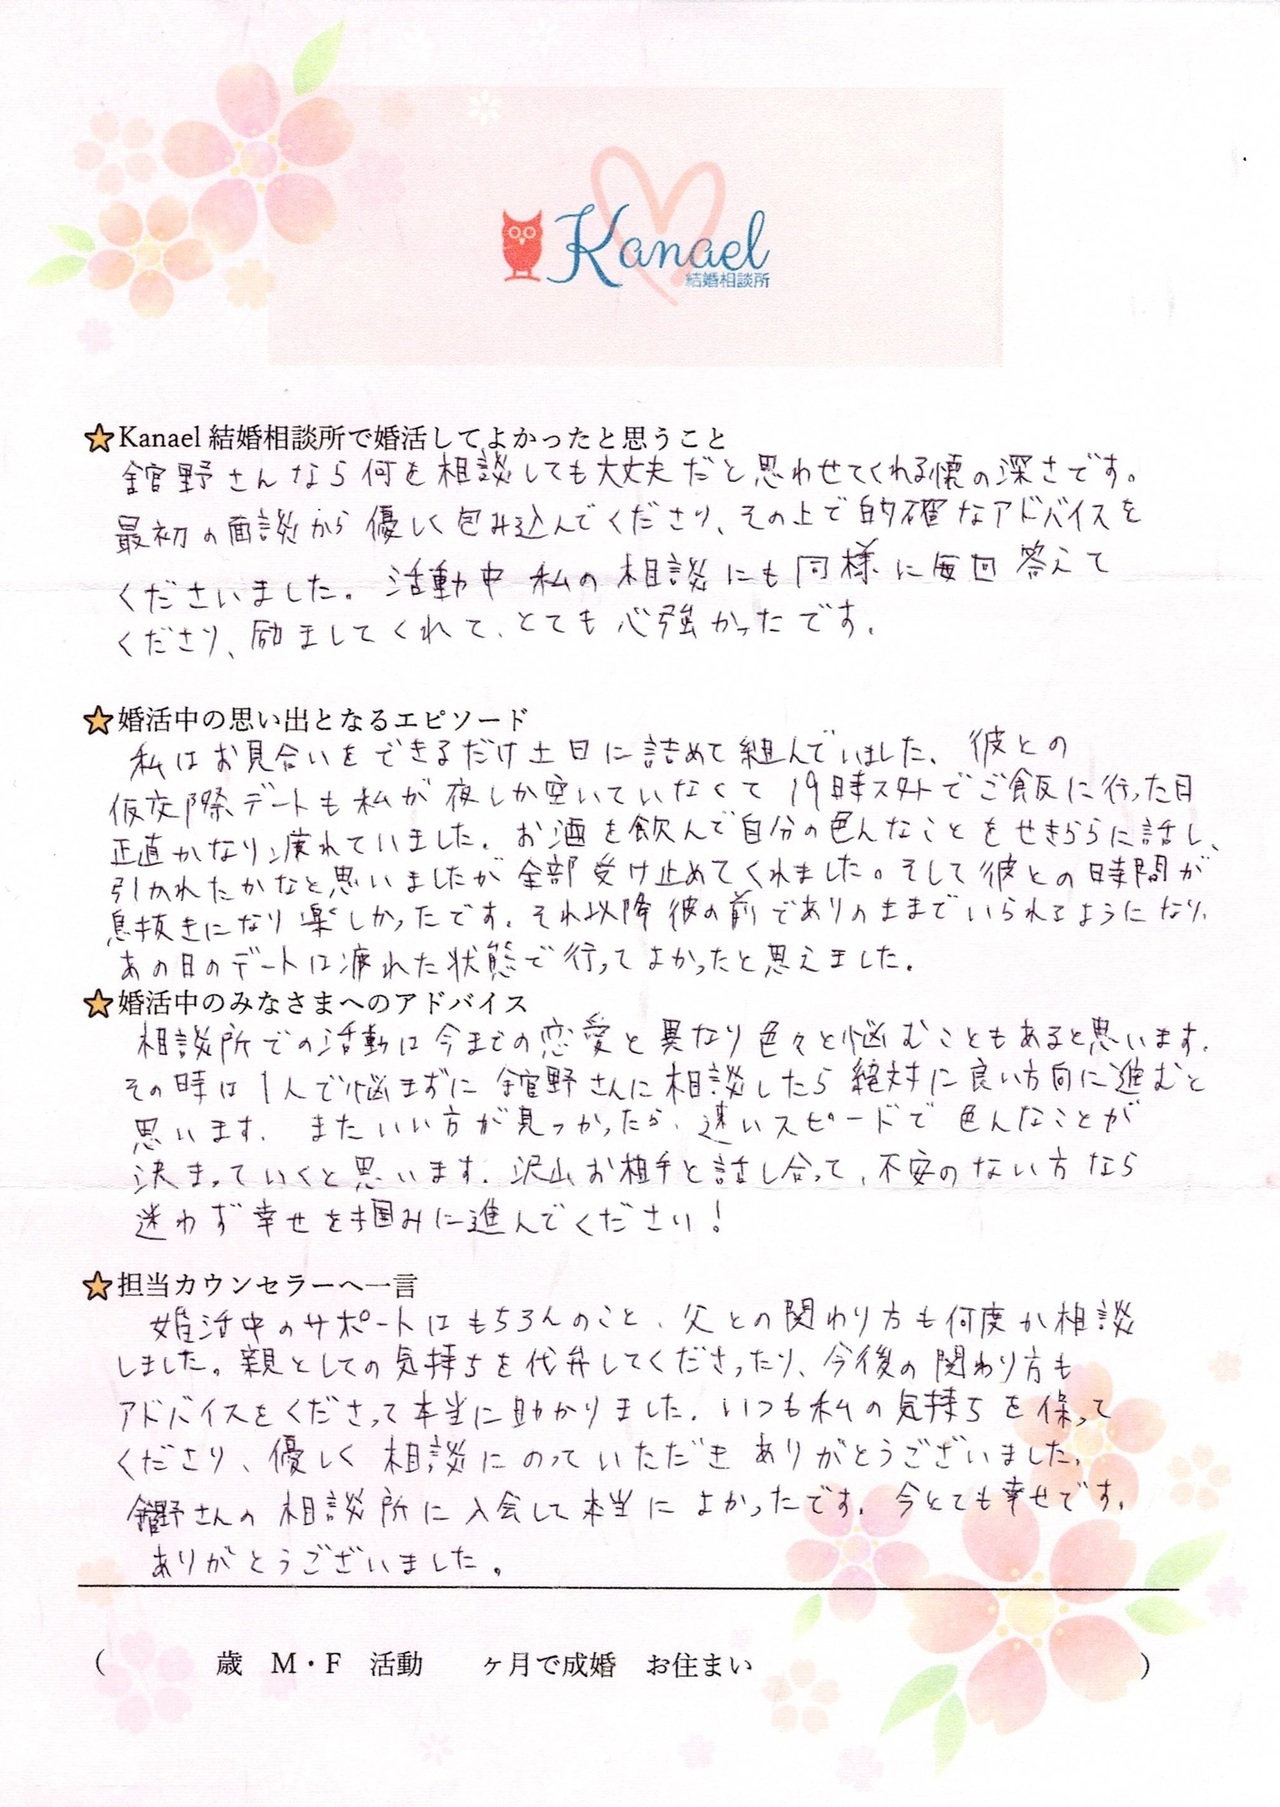 Kanael
結婚相談所
Kanael 結婚相談所で婚活してよかったと思うこと
舘野さんなら何を相談しても大丈夫だと思わせてくれる懐の深さです。
最初の面談から優しく包み込んでくださり、その上で的確なアドバイスを
くださいました。活動中 私の相談にも同様に毎回答えて
くださり、励ましてくれて、とても心強かったです。
婚活中の思い出となるエピソード
私はお見合いをできるだけ土日に詰めて組んでいました。彼との
仮交際デートも私が夜しか空いていなくて 19時スタートでご飯に行った日
正直かなり疲れていました。お酒を飲んで自分の色んなことをせきららに話し、
引かれたかなと思いましたが全部受け止めてくれました。そして彼との時間が
息抜きになり楽しかったです。それ以降彼の前でありのままでいられるようになり、
あの日のデートは疲れた状態で行ってよかったと思えました。
婚活中のみなさまへのアドバイス
相談所での活動は今までの恋愛と異なり色々と悩むこともあると思います。
その時は1人で悩まずに 舘野さんに相談したら絶対に良い方向に進むと
思います。またいい方が見つかったら、速いスピードで色んなことが
決まっていくと思います。沢山お相手と話し合って、不安のない方なら
迷わず幸せを掴みに進んでください！
担当カウンセラーへ一言
婚活中のサポートはもちろんのこと、父との関わり方も何度か相談
しました。親としての気持ちを代弁してくださったり、今後の関わり方も
アドバイスをくださって本当に助かりました。いつも私の気持ちを保って
くださり、優しく相談にのっていただき ありがとうございました。
舘野さんの相談所に入会して本当によかったです。今とても幸せです。
ありがとうございました。
(　　　歳　M・F　活動　　ヶ月で成婚　お住まい　　　　)